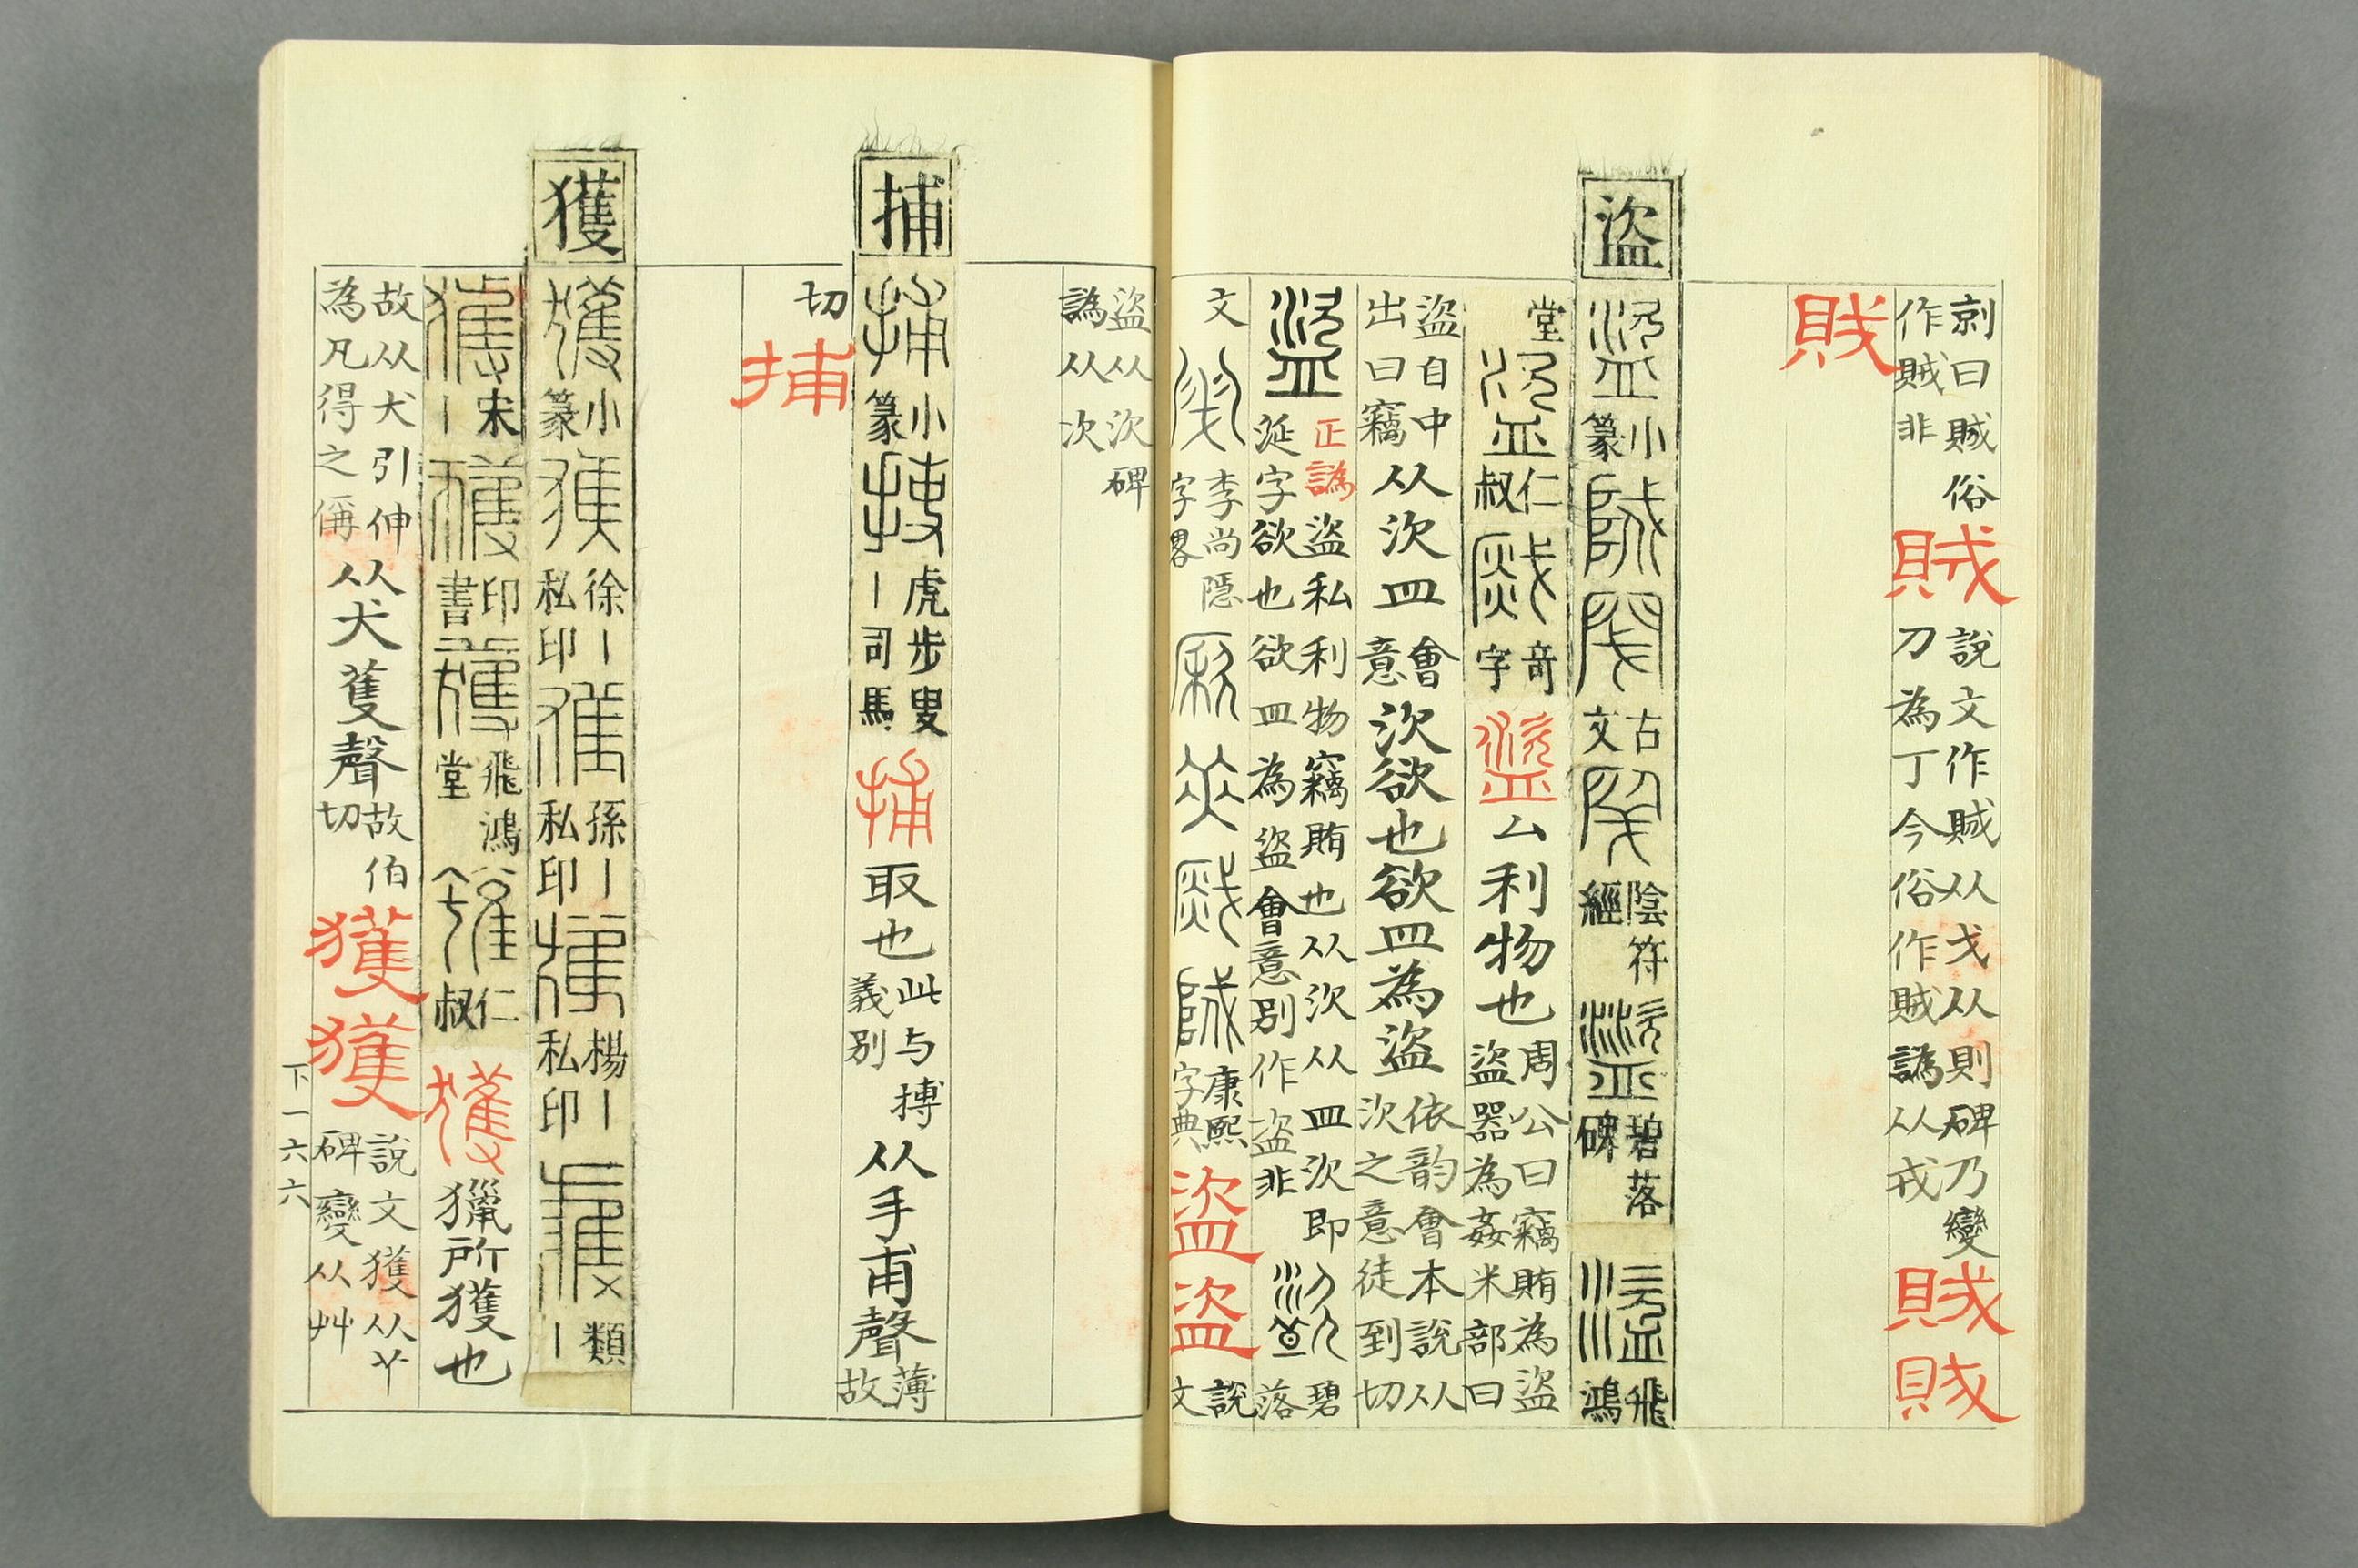 剠曰賊俗
作賊非
賊
說文作賊从戈从則碑乃變
刀為丁今俗作賊譌从戎
賊
賊
賊
盜
小篆
古文
陰符經
碧落碑
飛鴻
堂
仁叔
奇字
盜
厶利物也
周公曰竊賄為盜
盜器為姦米部曰
盜自中
出曰竊
从㳄皿
會意
㳄欲也欲皿為盜
依韵會本說从
㳄之意徒到切
盜
正譌
盜私利物竊賄也从㳄从皿㳄即
涎字欲也欲皿為盜會意別作盗非
碧落
文
李尚隱
字畧
康熙
字典
盜
盜
說文
盜从㳄碑
譌从次
捕
捕
小篆
虎步叟
丨司馬
捕
取也
此与搏
義別
从手甫聲
薄故
切
捕
獲
獲
小篆
徐丨
私印
孫丨
私印
楊丨
私印
類
丨
宋
丨
印
書
飛鴻
堂
仁
叔
獲
獵所獲也
故从犬引伸
為凡得之偁
从犬蒦聲
故伯
切
獲
獲
說文獲从丫
碑變从艸
下一六六